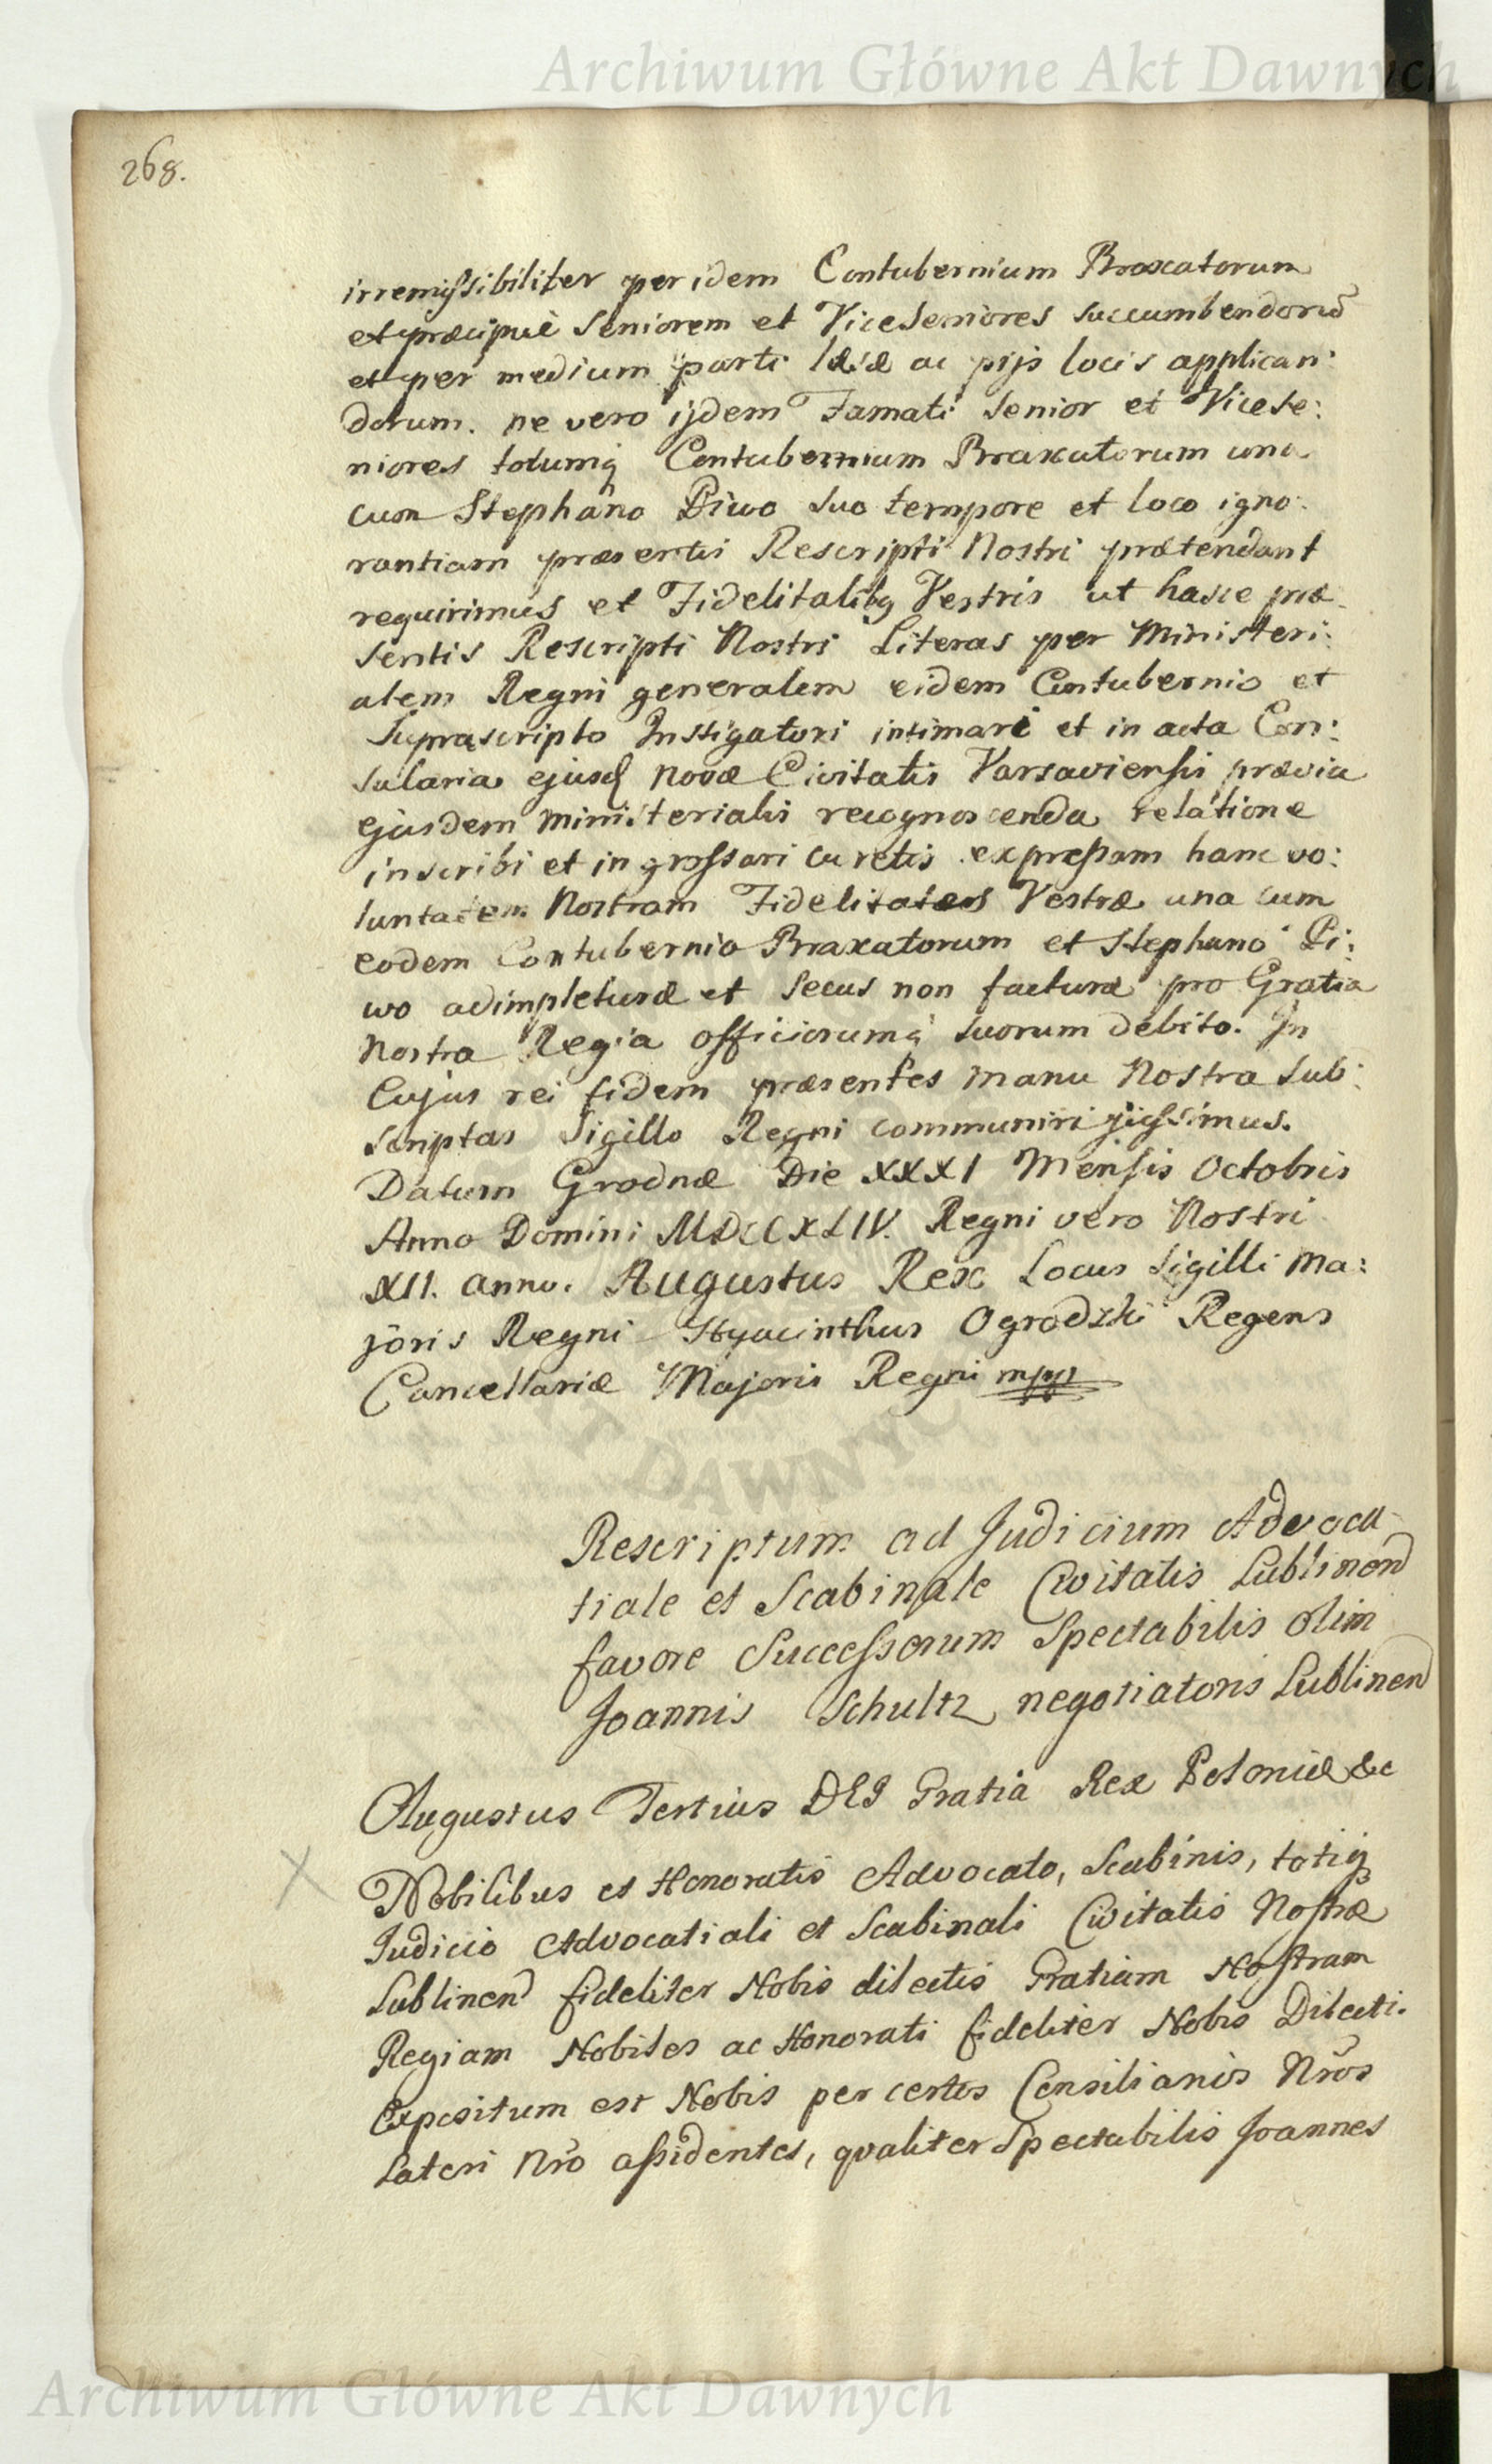 Archiwum Główne Akt Dawnych
268.
irremissibiliter per idem Contubernium Braxatorum
et præcipuè Seniorem et Viceseniores succumbendorū
et per medium parti læsæ ac pijs locis applican:
dorum. ne vero ijdem Famati Senior et Vicese:
niores totumq̃ Contubernium Braxatorum una
cum Stephano Piwo suo tempore et loco igno:
rantiam præsentis Rescripti Nostri prætendant
requirimus et Fidelitatibq Vestris ut hasce præ-
sentis Rescripti Nostri Literas per Ministeri:
alem Regni generalem eidem Contubernio et
Suprascripto Instigatori intimari et in acta Con:
sularia ejusd novæ Civitatis Varsaviensis prævia
ejusdem ministerialis recognoscenda relatione
inscribi et ingrossari curetis. expressam hanc vo:
luntatem Nostram Fidelitates Vestræ una cum
eodem Contubernio Braxatorum et Stephano Pi:
wo adimpleturæ et secus non facturæ pro Gratia
Nostra Regia officiorumq̃ suorum debito. In
Cujus rei fidem præsentes manu Nostra sub:
scriptas Sigillo Regni communiri jussimus.
Datum Grodnæ Die XXXI Mensis Octobris
Anno Domini MDCCXLIV. Regni vero Nostri
XII. anno. Augustus Rex Locus Sigilli Ma:
joris Regni Hyacinthus Ogrodzki Regens
Cancellariæ Majoris Regni mpp
Rescriptum ad Judicium Advoca-
tiale et Scabinale Civitatis Lublinen
favore Successorum Spectabilis olim
Joannis Schultz negotiatoris Lublinen
Augustus Tertius DEI Gratia Rex Poloniæ &c
Nobilibus et Honoratis Advocato, Scabinis, totiq̃
Judicio Advocatiali et Scabinali Civitatis Nostræ
Lublinen fideliter Nobis dilectis Gratiam Nostram
Regiam Nobiles ac Honorati fideliter Nobis Dilecti.
Expositum est Nobis per certos Consiliarios Nr̃os
Lateri Nr̃o assidentes, qvaliter Spectabilis Joannes
Archiwum Główne Akt Dawnych